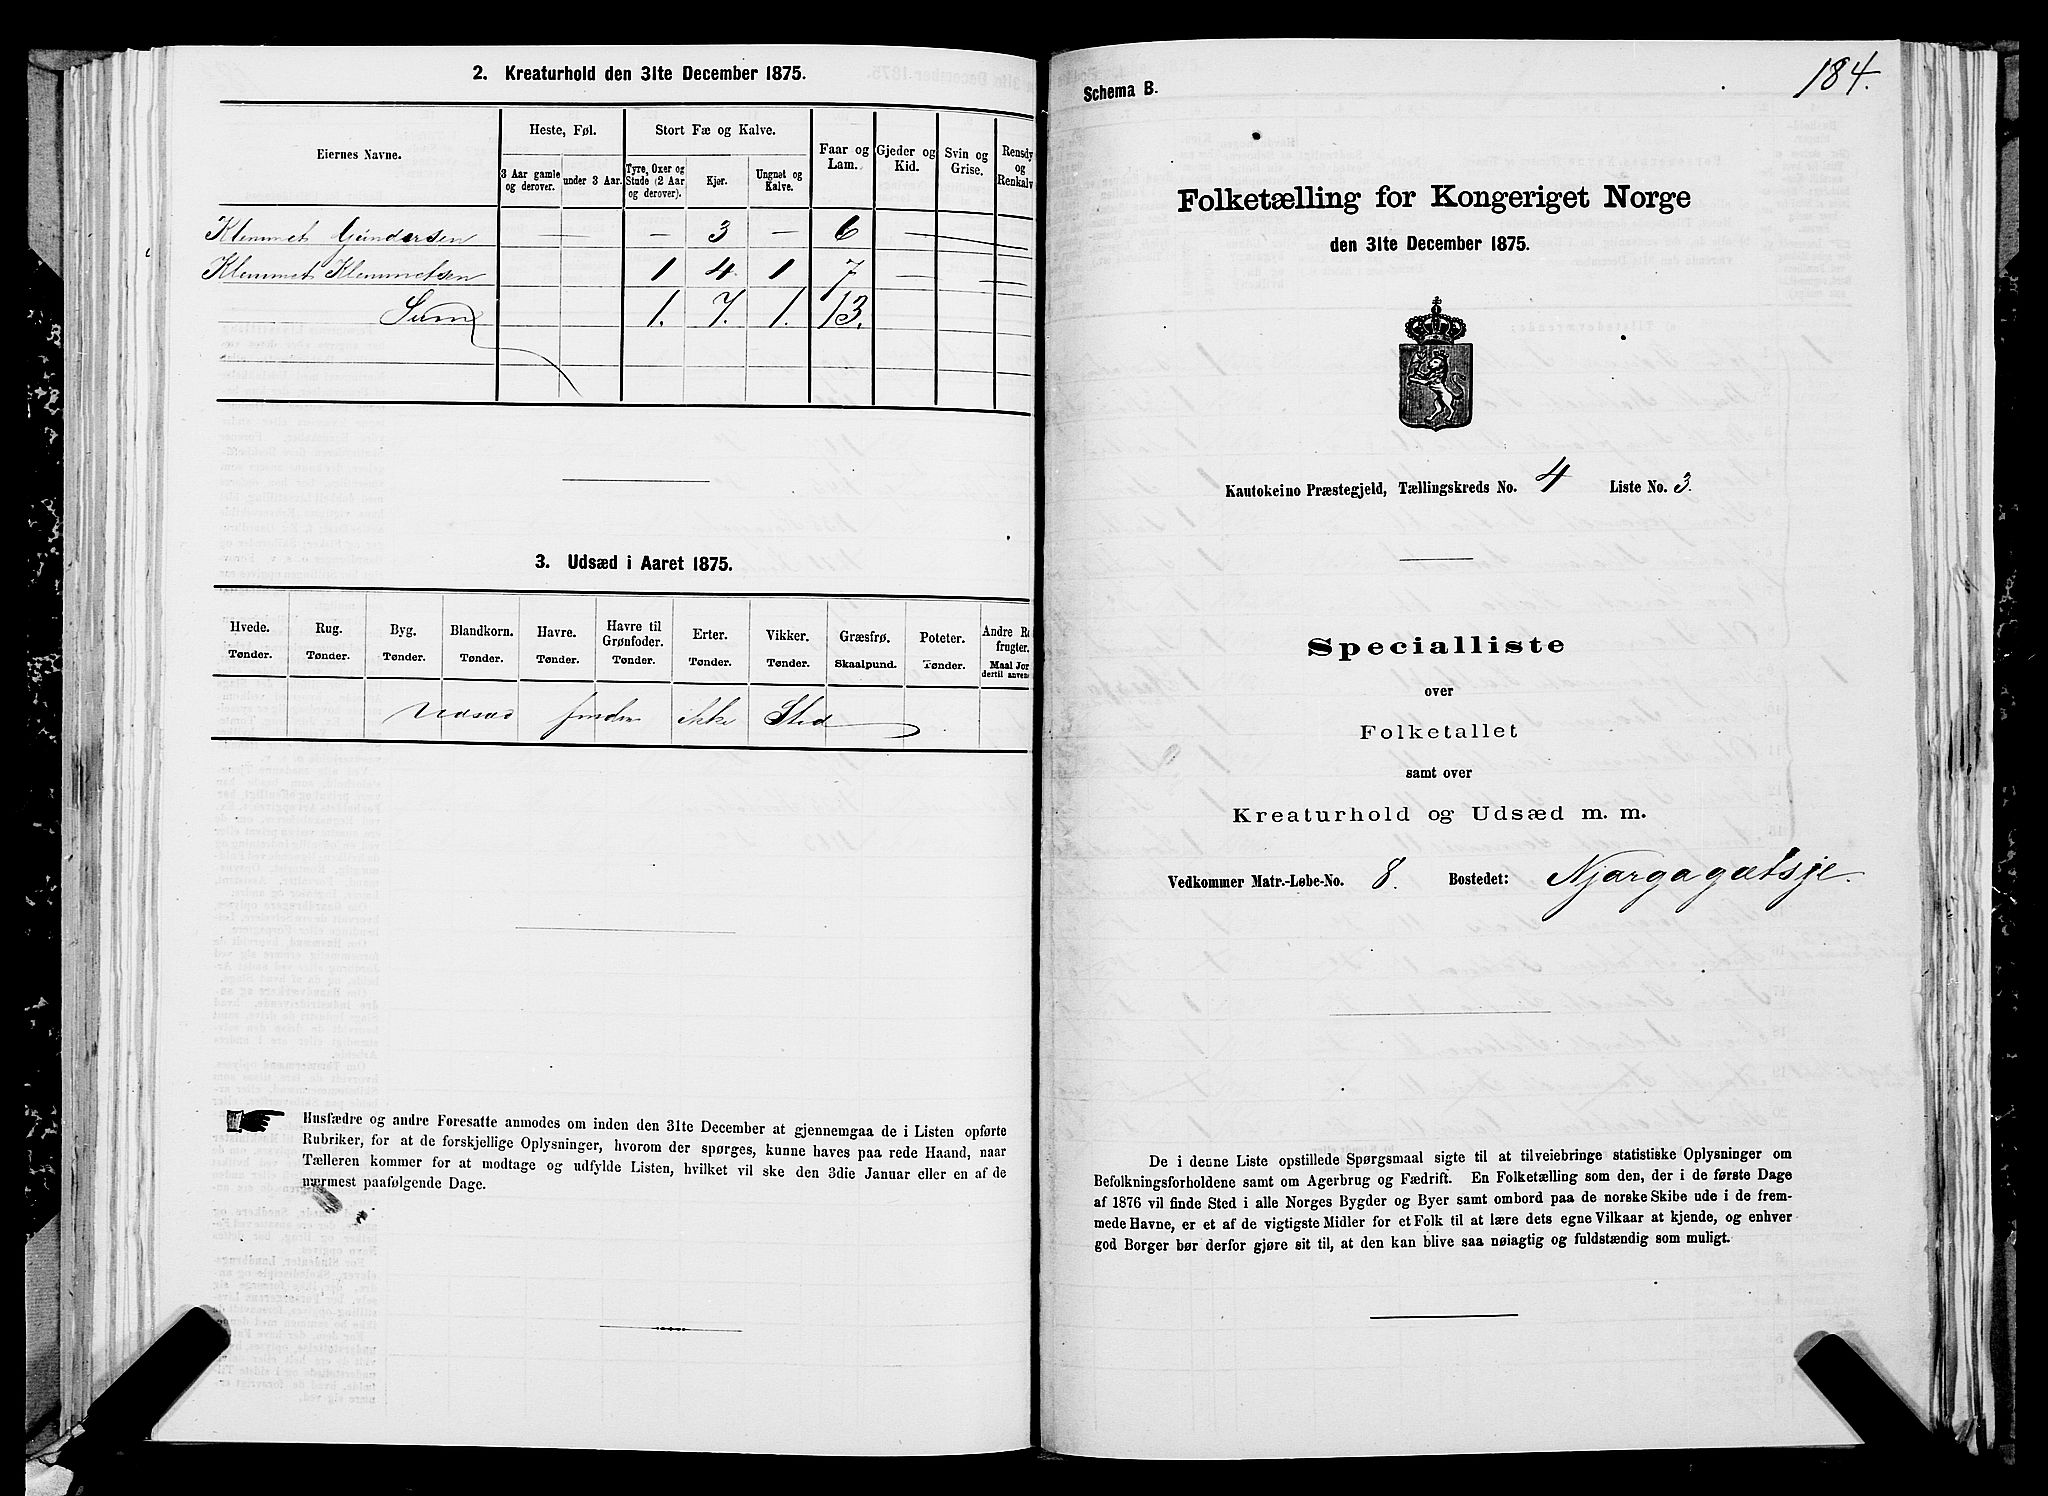 2. Kreaturhold den 31te December 1875.
Eiernes Navne.
Heste, Føl.
Stort Fæ og Kalve.
Faar og Lam.
Gjeder og Kid.
Svin og Grise.
Rensdy og Renkalv
3 Aar gamle og derover.
under 3 Aar.
Tyre, Oxer og Stude (2 Aar og derover).
Kjør.
Ungnøt og Kalve.
Klemmet Gundersen — — — 3 — 6 — — —
Klemmet Klemmetsen 1 4 1 7 — —
Sum 1. 7. 1. 13.
3. Udsæd i Aaret 1875.
Hvede. Rug. Byg. Blandkorn. Havre. Havre til Grønfoder. Erter. Vikker. Græsfrø. Poteter. Andre R frugter.
Tønder. Tønder. Tønder. Tønder. Tønder. Tønder. Tønder. Tønder. Skaalpund. Tønder. Maal Jor dertil anven
Udsæd finder ikke Sted
Husfædre og andre Foresatte anmodes om inden den 31te December at gjennemgaa de i Listen opførte
Rubriker, for at de forskjellige Oplysninger, hvorom der spørges, kunne haves paa rede Haand, naar
Tælleren kommer for at modtage og udfylde Listen, hvilket vil ske den 3die Januar eller en af de
nærmest paafølgende Dage.
184.
Schema B.
Folketælling for Kongeriget Norge
den 31te December 1875.
Kautokeino Præstegjeld, Tællingskreds No. 4 Liste No. 3.
Specialliste
over
Folketallet
samt over
Kreaturhold og Udsæd m. m.
Vedkommer Matr.-Løbe-No. 8. Bostedet: Njargagætsje.
De i denne Liste opstillede Spørgsmaal sigte til at tilveiebringe statistiske Oplysninger om
Befolkningsforholdene samt om Agerbrug og Fædrift. En Folketælling som den, der i de første Dage
af 1876 vil finde Sted i alle Norges Bygder og Byer samt ombord paa de norske Skibe ude i de frem-
mede Havne, er et af de vigtigste Midler for et Folk til at lære dets egne Vilkaar at kjende, og enhver
god Borger bør derfor gjøre sit til, at den kan blive saa nøiagtig og fuldstændig som muligt.